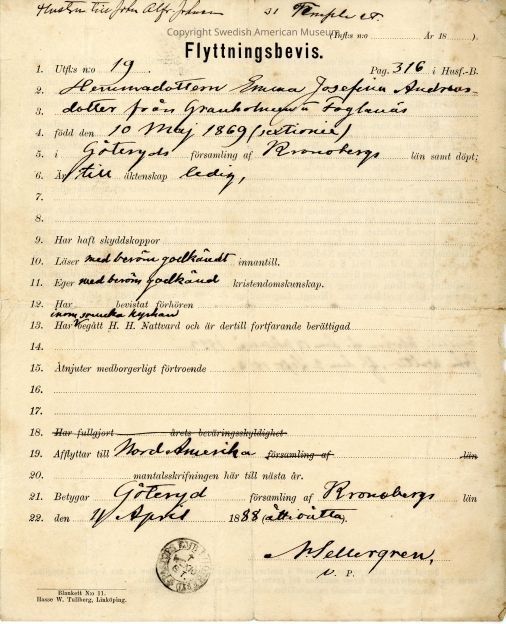 Hustru till John Alfr. Johnson 31 Temple st.
Copyright Swedish American Museum
(Infks n:o År 18 ).
Flyttningsbevis.
1. Utfks n:o 19. Pag. 316 i Husf.-B.
2. Hemmadottern Emma Josefina Andreas-
3. dotter från Granholmen u Foglanäs
4. född den 10 Maj 1869 (sextionie)
5. i Göteryds församling af Kronobergs län samt döpt;
6. Är till äktenskap ledig,
7.
8.
9. Har haft skyddskoppor
10. Läser med beröm godkändt innantill.
11. Eger med beröm godkänd kristendomskunskap.
12. Har bevistat förhören
inom svenska kyrkan
13. Har begått H. H. Nattvard och är dertill fortfarande berättigad
14.
15. Åtnjuter medborgerligt förtroende
16.
17.
18. Har fullgjort årets beväringsskyldighet
19. Afflyttar till Nord Amerika församling af län
20. mantalsskrifningen här till nästa år.
21. Betygar Göteryd församling af Kronobergs län
22. den April 1888 (åttiåtta).
N Sellergren,
v. P.
Blankett N:o 11.
Hasse W. Tullberg, Linköping.